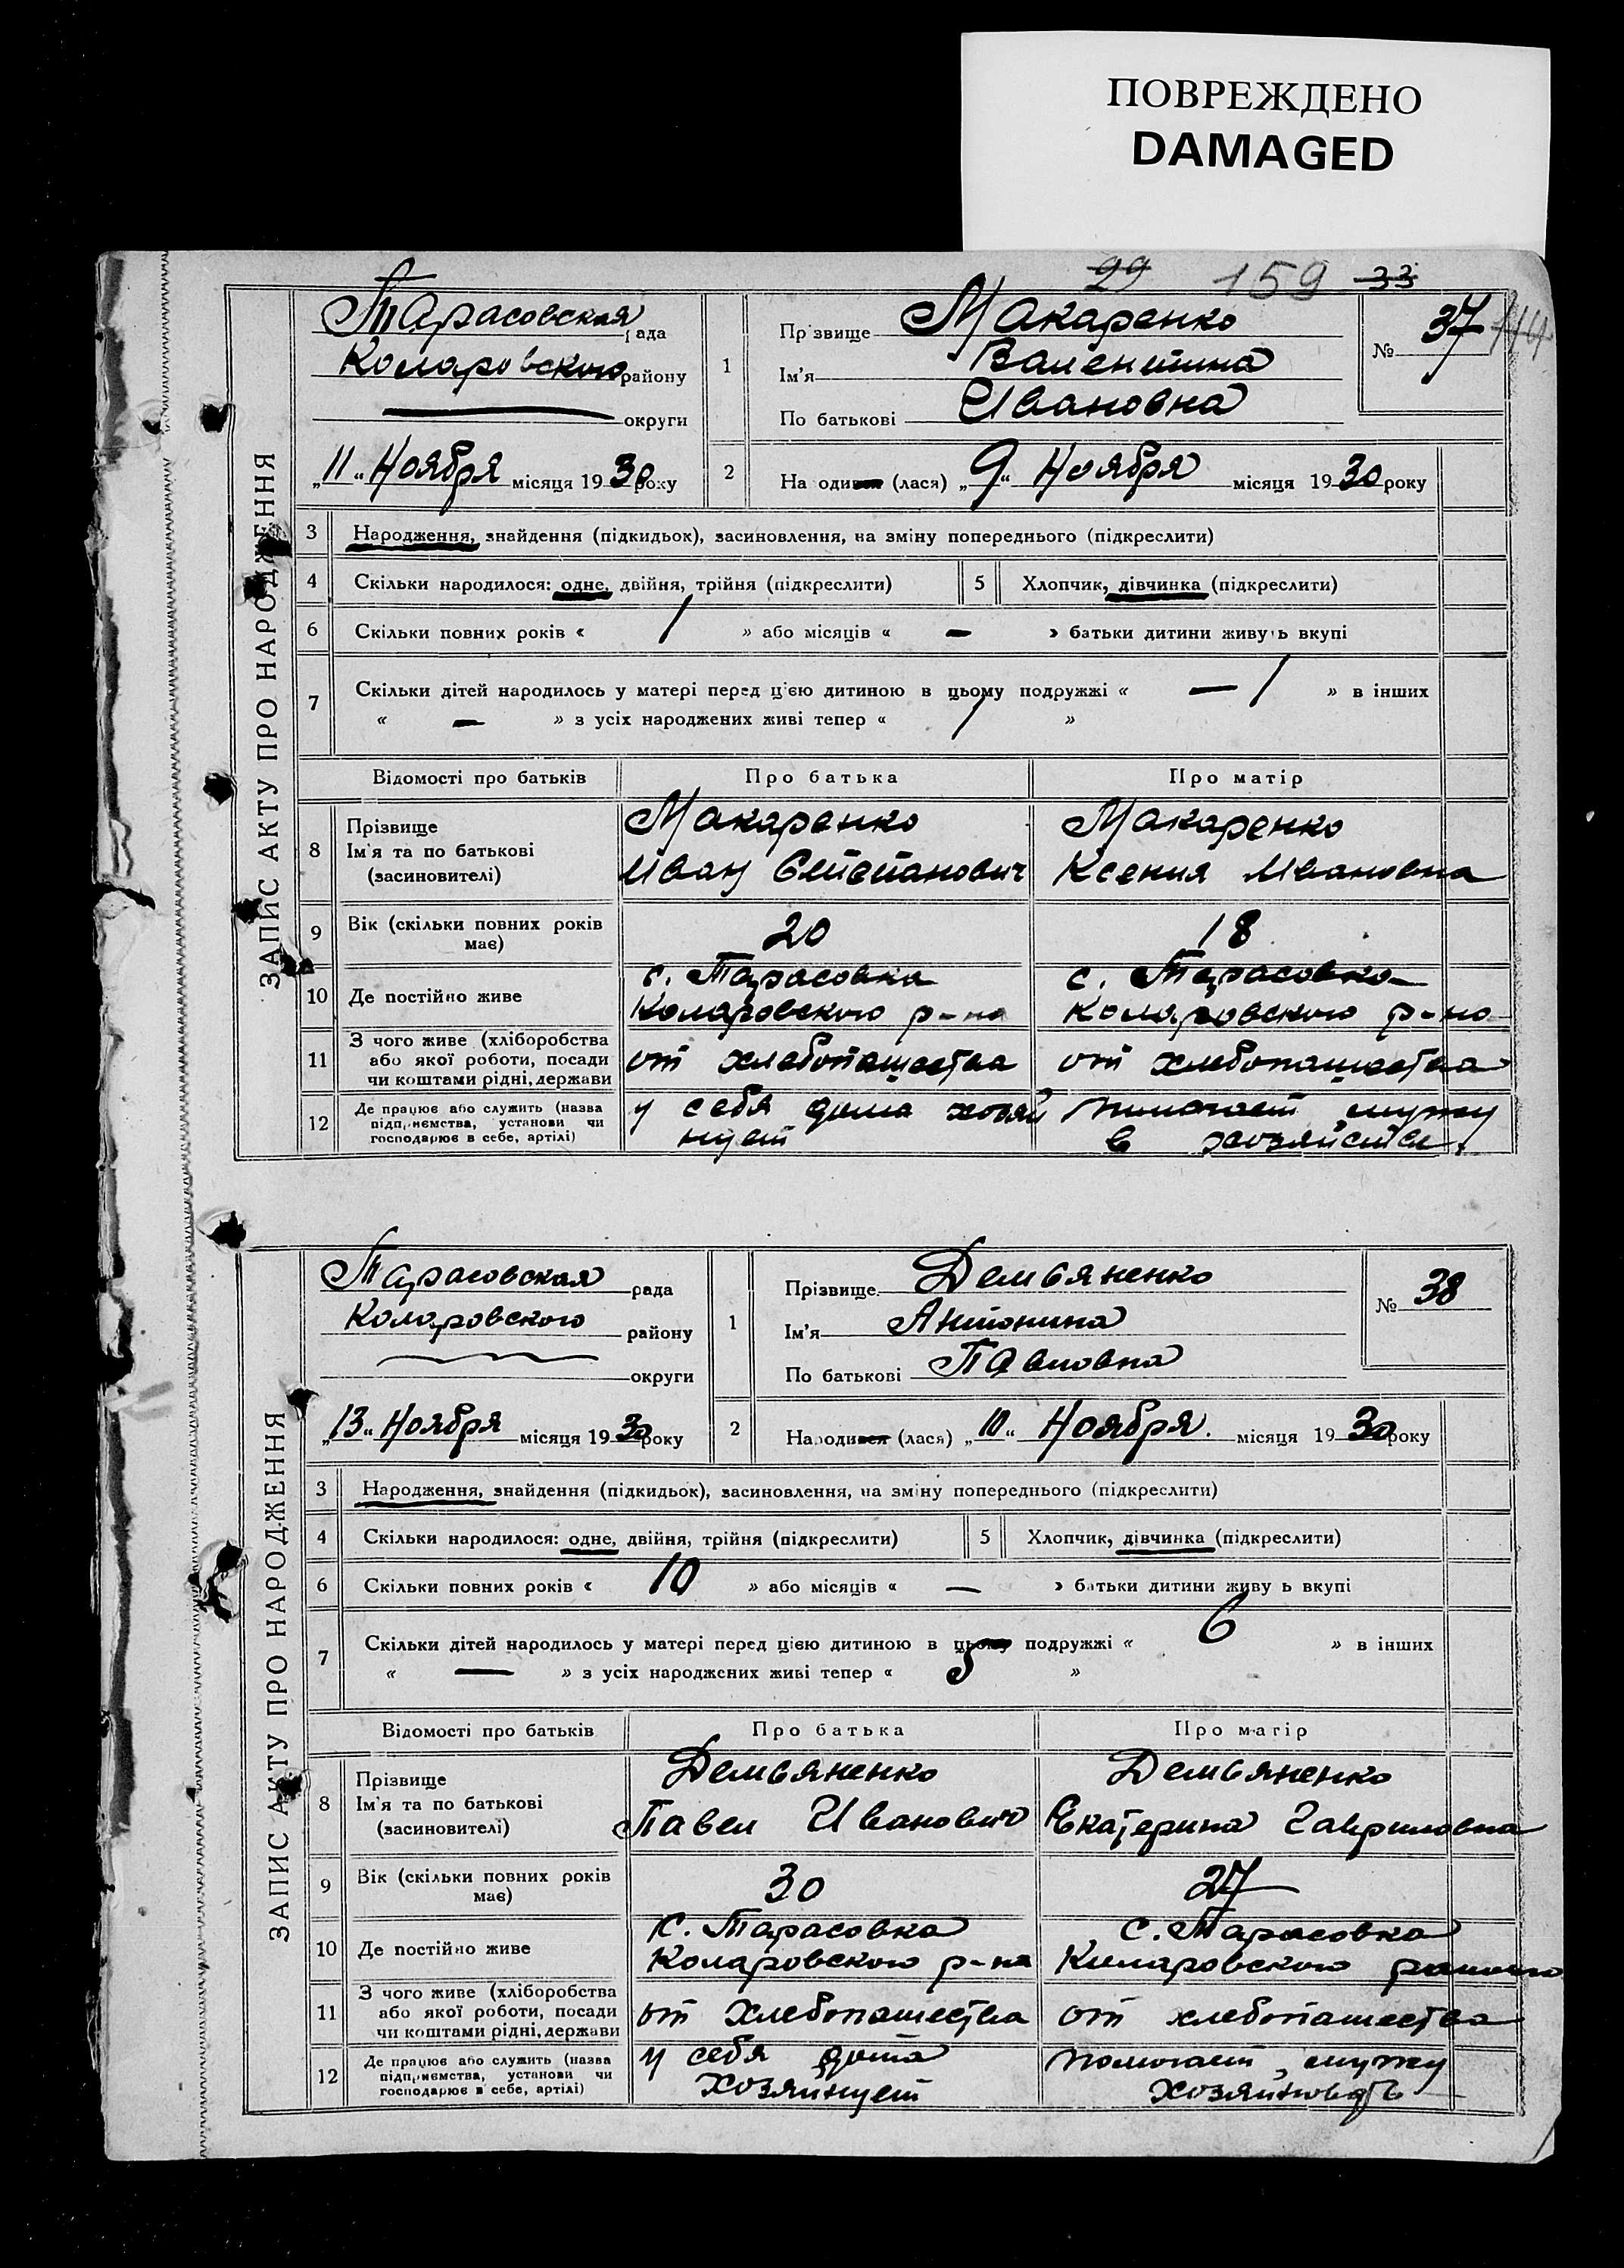 ПОВРЕЖДЕНО
DAMAGED
29 159 33
ЗАПИС АКТУ ПРО НАРОДЖЕННЯ
Тарасовская рада
Коларовского району
округи
„11“ Ноября місяця 1930 року
1
Прізвище Макаренко
Ім'я Валентина
По батькові Ивановна
№ 37
2
На одився (лася) „9“ Ноября місяця 1930 року
3 Народження, знайдення (підкидьок), засиновлення, на зміну попереднього (підкреслити)
4 Скільки народилося: одне, двійня, трійня (підкреслити) 5 Хлопчик, дівчинка (підкреслити)
6 Скільки повних років « 1 » або місяців « — » батьки дитини живуть вкупі
7 Скільки дітей народилось у матері перед цією дитиною в цьому подружжі « — 1 » в інших
« — » з усіх народжених живі тепер « 1 »
Відомості про батьків Про батька Про матір
8 Прізвище
Ім'я та по батькові
(засиновителі)
Макаренко
Иван Степанович
Макаренко
Ксения Ивановна
9 Вік (скільки повних років
має)
20
18
10 Де постійно живе
с. Тарасовка
Коларовского р-на
с. Тарасовка
Коларовского р-на
11 З чого живе (хліборобства
або якої роботи, посади
чи коштами рідні, держави
от хлебопашества
от хлебопашества
12 Де працює або служить (назва
підприємства, установи чи
господарює в себе, артілі)
у себя дома хозяй
нует
помогает мужу
в хозяйстве.
ЗАПИС АКТУ ПРО НАРОДЖЕННЯ
Тарасовская рада
Коларовского району
округи
„13“ Ноября місяця 1930 року
1
Прізвище Демьяненко
Ім'я Антонина
По батькові Павловна
№ 38
2
Народився (лася) „10“ Ноября. місяця 1930 року
3 Народження, знайдення (підкидьок), засиновлення, на зміну попереднього (підкреслити)
4 Скільки народилося: одне, двійня, трійня (підкреслити) 5 Хлопчик, дівчинка (підкреслити)
6 Скільки повних років « 10 » або місяців « — » батьки дитини живу ь вкупі
7 Скільки дітей народилось у матері перед цією дитиною в цьому подружжі « 6 » в інших
« — » з усіх народжених живі тепер « 5 »
Відомості про батьків Про батька Про матір
8 Прізвище
Ім'я та по батькові
(засиновителі)
Демьяненко
Павел Иванович
Демьяненко
Екатерина Гавриловна
9 Вік (скільки повних років
має)
30
27
10 Де постійно живе
с. Тарасовка
Коларовского р-на
с. Тарасовка
Коларовского
11 З чого живе (хліборобства
або якої роботи, посади
чи коштами рідні, держави
от хлебопашества
от хлебопашества
12 Де працює або служить (назва
підприємства, установи чи
господарює в себе, артілі)
у себя дома
хозяйнует
помогает мужу
хозяйновать